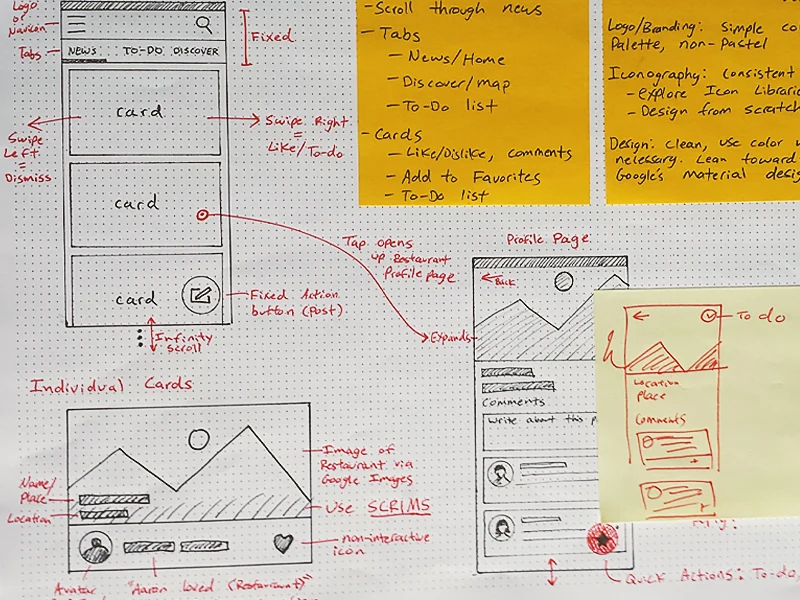 Logo
or
Navicon
Tabs
NEWS TO-DO DISCOVER
Fixed
card
Swipe Left = Dismiss
Swipe Right
=
Like/To-do
card
card
Fixed Action
button (Post)
Infinity
Scroll
Tap opens
up Restaurant
Profile page
Expands
- Scroll through news
- Tabs
- News/Home
- Discover/map
- To-Do list
- Cards
- Like/Dislike, comments
- Add to Favorites
- To-Do list
Logo/Branding: Simple
Palette, non-Pastel
Iconography: consistent
- explore Icon
- Design from scratch
Design: Clean, use color
necessary. Lean toward
Google's material
Profile Page
Back
Comments
Write about this
Quick Actions: To-do,
To do
Location
Place
Comments
Individual Cards
Name/
Place
Location
Image of
Restaurant via
Google Images
Use SCRIMS
non-interactive
icon
Avatar
"Aaron loved (Restaurant)"